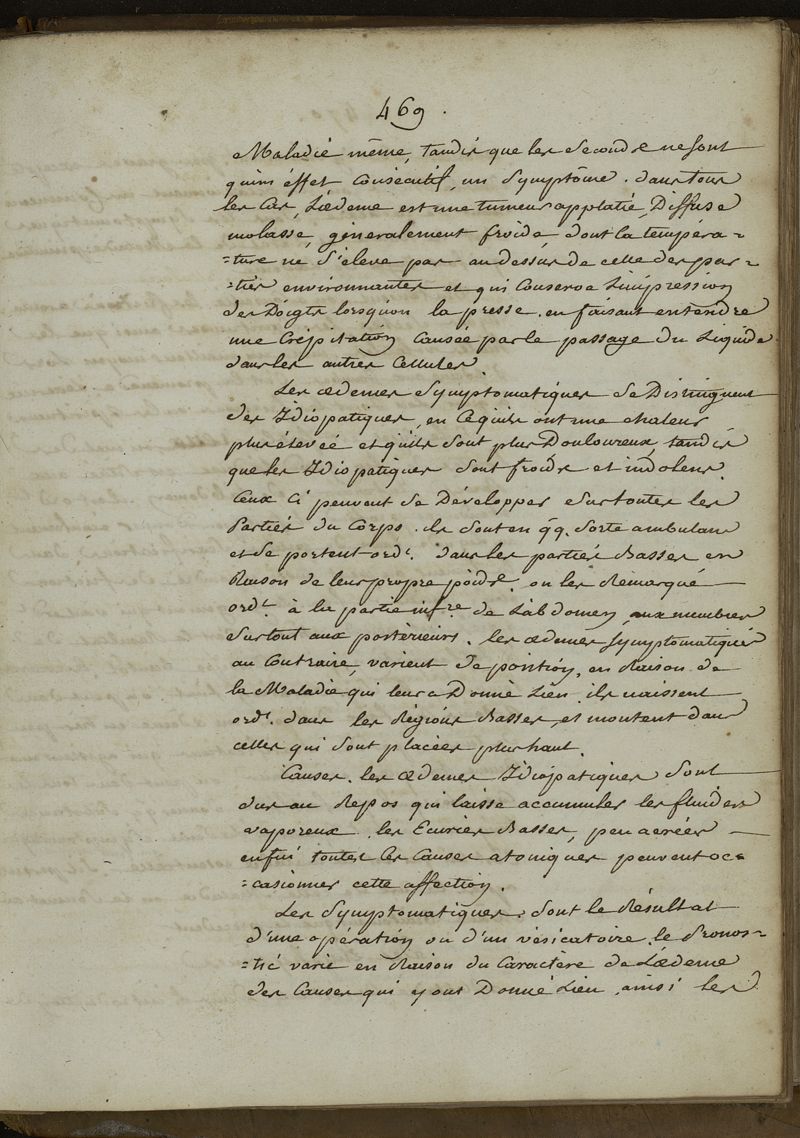 469.
Maladie même, tandis que les Seconds ne sont
qu'un éffet Consécutif, un Symptôme. dans tous
les Cas, L'œdeme est une tumeur applatie, Diffuse
molasse, géneralement froide dont la tempera=
=ture ne s'éleve pas au dessus de celle des par=
=ties environnantes et qui Conserve L'impression
des Doigts lorsquon la presse. en faisant entendre
une Crépitation Causée par le passage du Liquide
dans les autres Cellules.
Les œdemes Symptomatiques se Distinguent
des Idiopatiques, en Cequ'ils ont une chaleur
plus élevée et qu'ils sont plus Douloureux, tandis
que les Idiopatiques sont froids et indolens.
Ceux Ci peuvent se Développer sur toutes les
Parties du Corps. ils sont en qq. Sorte ambulans
et se portent ord.t dans les parties Basses en
Raison de leur propre poids. on les Remarque
ord.t à la partie inf.re de L'abdomen, aux membres
Surtout aux postèrieurs. les œdemes Symptomatiques
au Contraire, varient de position, en Raison de
la Maladie qui leur a Donné Lieu. ils naissent
ord.t dans les Régions Basses, et montent dans
celles qui sont placées plus haut.
Causes. les œdemes Idiopatiques sont
dus au Repos qui laisse accumuler les fluides
vaporeux. les Ecuries Basses, peu aerées
enfin toutes les Causes atoniques peuvent oc=
=casionner cette affection.
Les Symptomatiques, sont le Résultat
d'une opération ou d'un vésicatoire. le Pronos=
=tic varie en Raison du Caractère de L'œdeme
des Causes qui y ont Donné Lieu, ainsi les